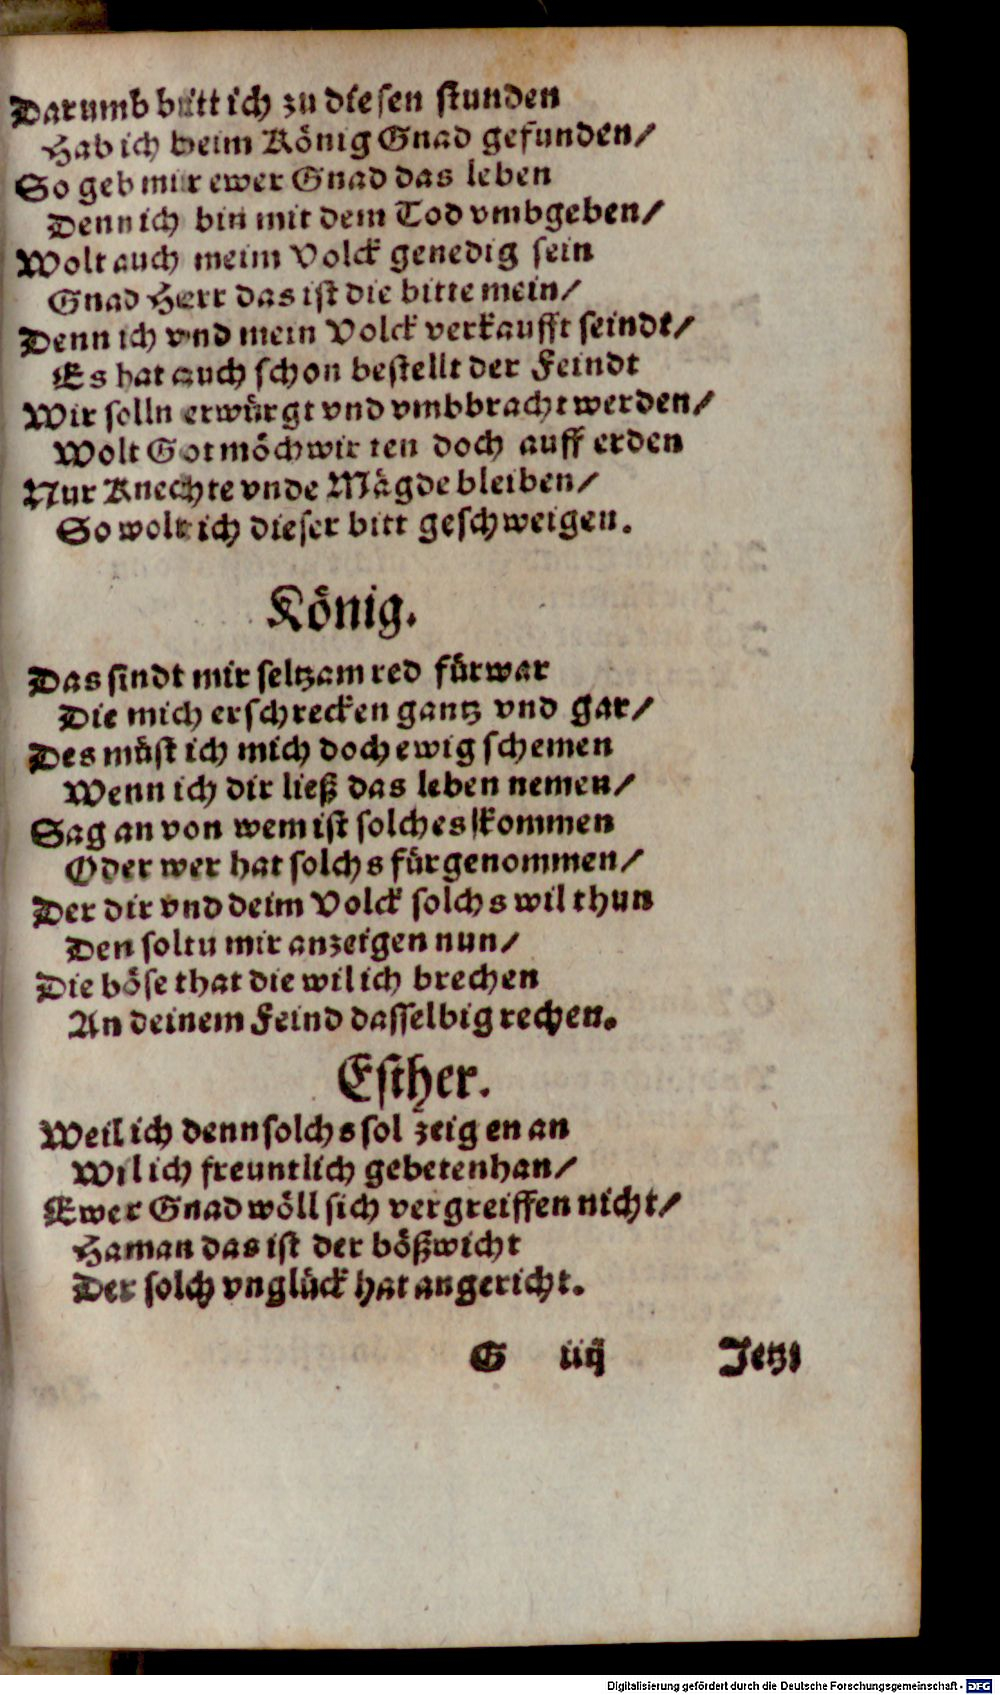 Darumb bitt ich zu diesen stunden
Hab ich beim König Gnad gefunden/
So geb mir ewer Gnad das leben
Denn ich bin mit dem Tod vmbgeben/
Wolt auch meim Volck genedig sein
Gnad Herr das ist die bitte mein/
Denn ich vnd mein Volck verkaufft seindt/
Es hat auch schon bestellt der Feindt
Wir solln erwürgt vnd vmbbracht werden/
Wolt Got möchwir ten doch auff erden
Nur Knechte vnde Mägde bleiben/
So wolt ich dieser bitt geschweigen.
König.
Das sindt mir seltzam red fürwar
Die mich erschrecken gantz vnd gar/
Des müst ich mich doch ewig schemen
Wenn ich dir ließ das leben nemen/
Sag an von wem ist solches kommen
Oder wer hat solchs fürgenommen/
Der dir vnd deim Volck solchs wil thun
Den soltu mir anzeigen nun/
Die böse that die wil ich brechen
An deinem Feind dasselbig rechen.
Esther.
Weil ich denn solchs sol zeigen an
Wil ich freuntlich gebetenhan/
Ewer Gnad wöll sich vergreiffen nicht/
Haman das ist der bößwicht
Der solch vnglück hat angericht.
G iiij Jetzt
Digitalisierung gefördert durch die Deutsche Forschungsgemeinschaft - DFG